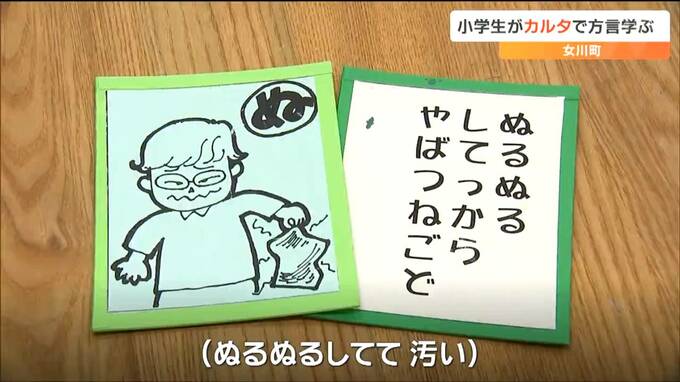 小学生がカルタで方言学ぶ
女川町
ぬ
ぬるぬる
してっから
やばつねごど
（ぬるぬるしてて 汚い）